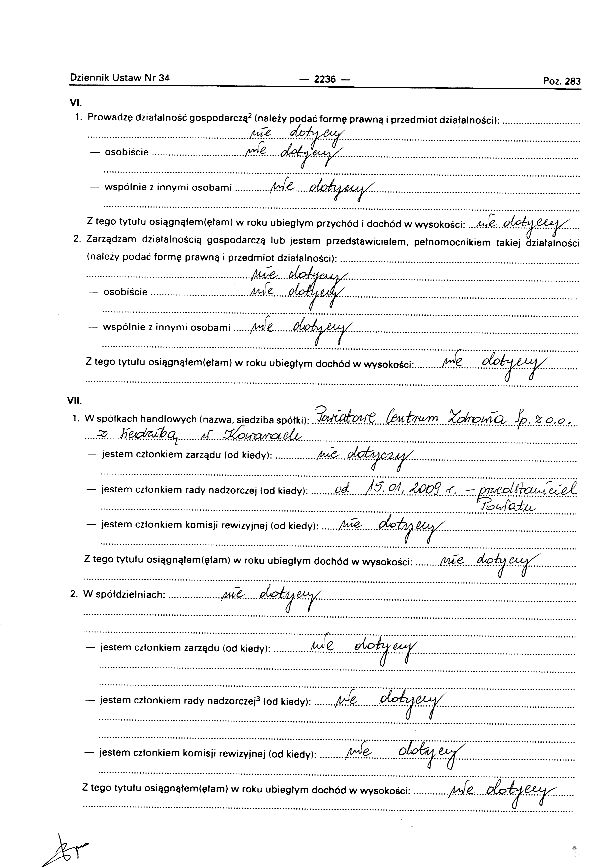 Dziennik Ustaw Nr 34 — 2236 — Poz. 283
VI.
1. Prowadzę działalność gospodarczą² (należy podać formę prawną i przedmiot działalności):
nie dotyczy
— osobiście nie dotyczy
— wspólnie z innymi osobami nie dotyczy
Z tego tytułu osiągnąłem(ęłam) w roku ubiegłym przychód i dochód w wysokości: nie dotyczy
2. Zarządzam działalnością gospodarczą lub jestem przedstawicielem, pełnomocnikiem takiej działalności
(należy podać formę prawną i przedmiot działalności):
nie dotyczy
— osobiście nie dotyczy
— wspólnie z innymi osobami nie dotyczy
Z tego tytułu osiągnąłem(ęłam) w roku ubiegłym dochód w wysokości: nie dotyczy
VII.
1. W spółkach handlowych (nazwa, siedziba spółki): Powiatowe Centrum Zdrowia Sp. z o.o.
z siedzibą w Kowanówku
— jestem członkiem zarządu (od kiedy): nie dotyczy
— jestem członkiem rady nadzorczej (od kiedy): od 15.01.2009 r. – przedstawiciel
Powiatu
— jestem członkiem komisji rewizyjnej (od kiedy): nie dotyczy
Z tego tytułu osiągnąłem(ęłam) w roku ubiegłym dochód w wysokości: nie dotyczy
2. W spółdzielniach: nie dotyczy
— jestem członkiem zarządu (od kiedy): nie dotyczy
— jestem członkiem rady nadzorczej³ (od kiedy): nie dotyczy
— jestem członkiem komisji rewizyjnej (od kiedy): nie dotyczy
Z tego tytułu osiągnąłem(ęłam) w roku ubiegłym dochód w wysokości: nie dotyczy